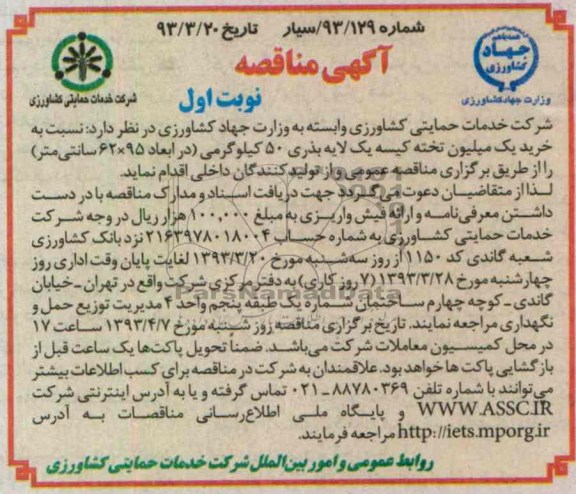 شماره ۹۳/۱۲۹/سیار تاریخ ۹۳/۳/۲۰
جهاد کشاورزی
وزارت جهاد کشاورزی
آگهی مناقصه
نوبت اول
شرکت خدمات حمایتی کشاورزی
شرکت خدمات حمایتی کشاورزی وابسته به وزارت جهاد کشاورزی در نظر دارد: نسبت به
خرید یک میلیون تخته کیسه یک لایه بذری ۵۰ کیلوگرمی (در ابعاد ۹۵×۶۲ سانتی‌متر)
را از طریق برگزاری مناقصه عمومی و از تولیدکنندگان داخلی اقدام نماید.
لذا از متقاضیان دعوت می‌گردد جهت دریافت اسناد و مدارک مناقصه با در دست
داشتن معرفی‌نامه و ارائه فیش واریزی به مبلغ ۱۰۰,۰۰۰ هزار ریال در وجه شرکت
خدمات حمایتی کشاورزی به شماره حساب ۲۱۶۳۹۷۸۰۱۸۰۰۴ نزد بانک کشاورزی
شعبه گاندی کد ۱۱۵۰ از روز سه‌شنبه مورخ ۱۳۹۳/۳/۲۰ لغایت پایان وقت اداری روز
چهارشنبه مورخ ۱۳۹۳/۳/۲۸ (۷ روز کاری) به دفتر مرکزی شرکت واقع در تهران ـ خیابان
گاندی ـ کوچه چهارم ساختمان شماره یک طبقه پنجم واحد ۴ مدیریت توزیع حمل و
نگهداری مراجعه نمایند. تاریخ برگزاری مناقصه روز شنبه مورخ ۱۳۹۳/۴/۷ ساعت ۱۷
در محل کمیسیون معاملات شرکت می‌باشد. ضمنا تحویل پاکت‌ها یک ساعت قبل از
بازگشایی پاکت ها خواهد بود. علاقمندان به شرکت در مناقصه برای کسب اطلاعات بیشتر
می‌توانند با شماره تلفن ۸۸۷۸۰۳۶۹ ـ ۰۲۱ تماس گرفته و یا به آدرس اینترنتی شرکت
WWW.ASSC.IR و پایگاه ملی اطلاع‌رسانی مناقصات به آدرس
http://iets.mporg.ir مراجعه فرمایند.
روابط عمومی و امور بین‌الملل شرکت خدمات حمایتی کشاورزی
ParsNamadData